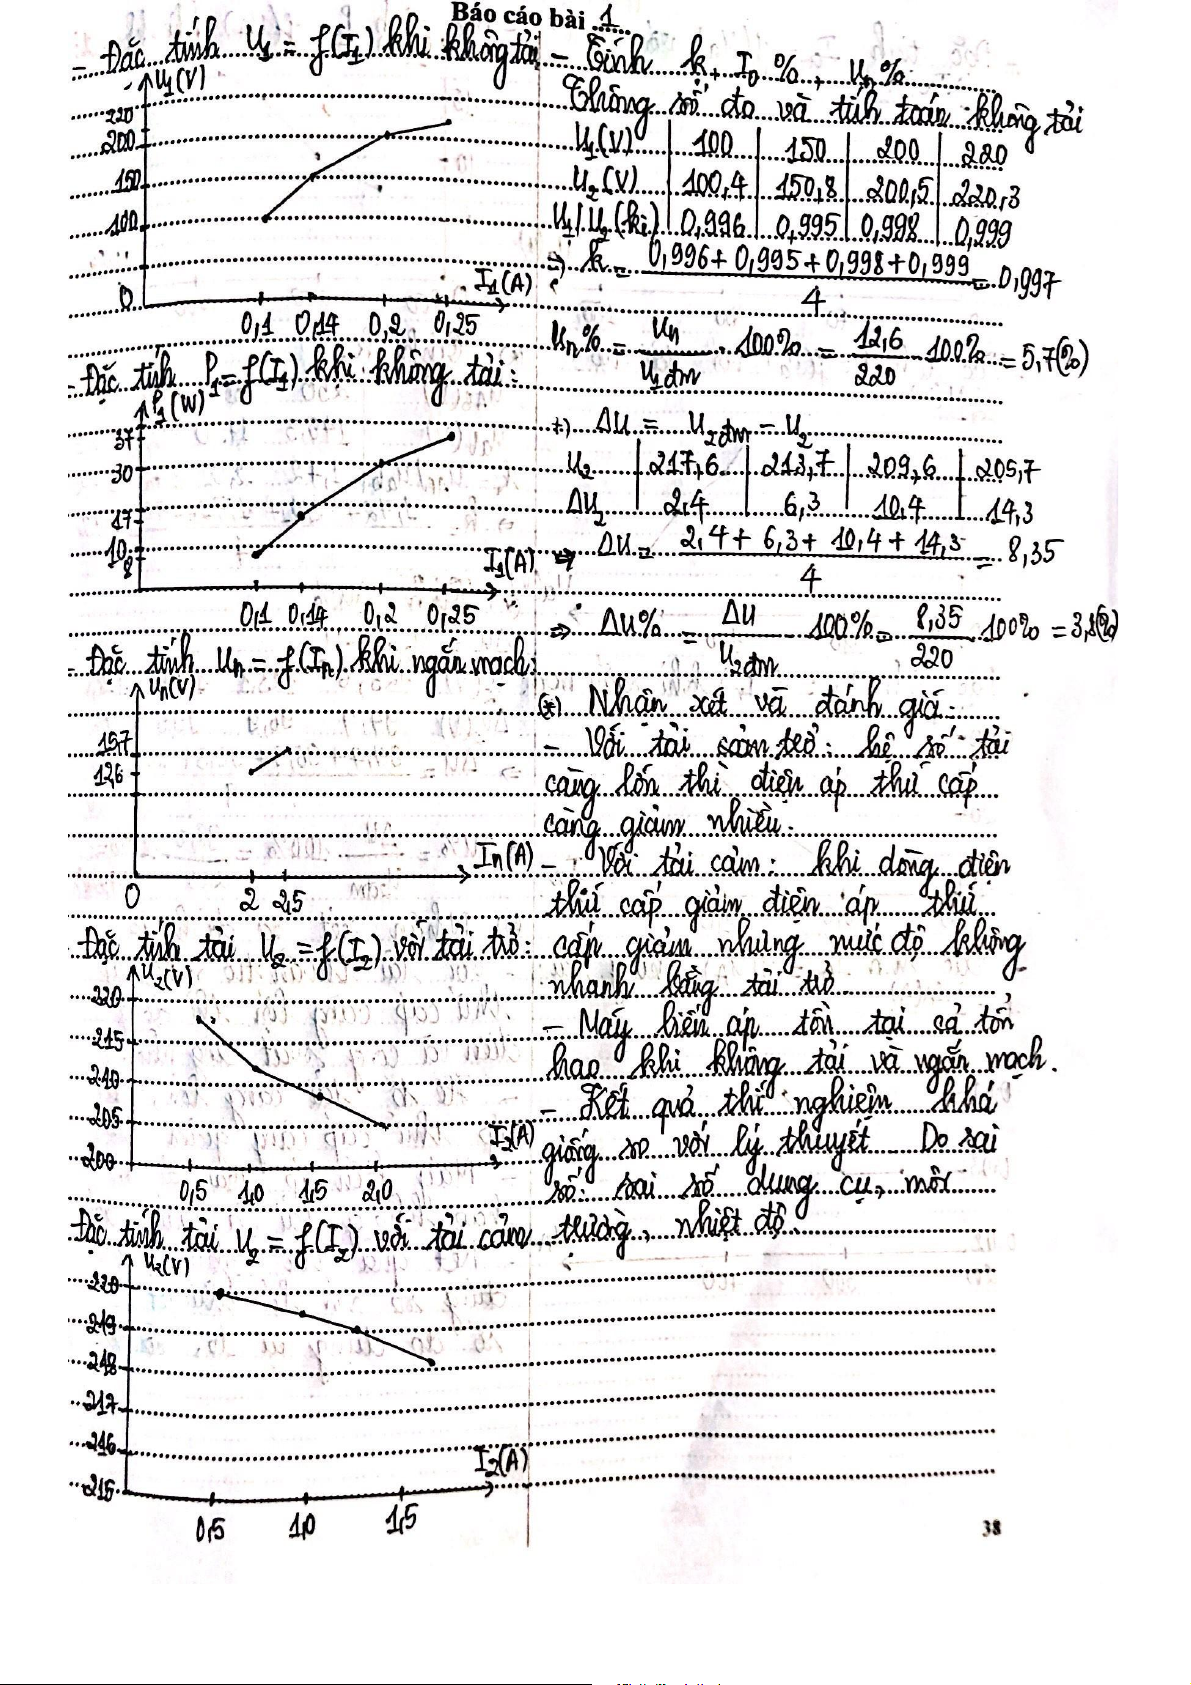 Báo cáo bài 1
- Đặc tính U₁ = f(I₁) khi không tải
U₁(V)
220
200
150
100
0
I₁(A)
0,1 0,14 0,2 0,25
- Đặc tính P₁ = f(I₁) khi không tải:
P₁(W)
37
30
17
10
8
I₁(A)
0,1 0,14 0,2 0,25
- Đặc tính Uₙ = f(Iₙ) khi ngắn mạch:
Uₙ(V)
15,7
12,6
In(A)
0 2 2,5
Đặc tính tải U₂ = f(I₂) với tải trở:
U₂(V)
220
215
210
205
200
I₂(A)
0,5 1,0 1,5 2,0
Đặc tính tải U₂ = f(I₂) với tải cảm
U₂(V)
220
219
218
217
216
215
I₂(A)
0,5 1,0 1,5
- Tính k, I₀%, Uₙ%
Thông số đo và tính toán không tải
U₁(V) 100 150 200 220
U₂(V) 100,4 150,8 200,5 220,3
U₁/U₂(ki) 0,996 0,995 0,998 0,999
=> k = (0,996 + 0,995 + 0,998 + 0,999)/4 = 0,997
Uₙ% = Uₙ/U₁đm . 100% = 12,6/220 . 100% = 5,7(%)
+) ΔU = U₂đm - U₂
U₂ 217,6 213,7 209,6 205,7
ΔU₂ 2,4 6,3 10,4 14,3
=> ΔU = (2,4 + 6,3 + 10,4 + 14,3)/4 = 8,35
=> ΔU% = ΔU/U₂đm . 100% = 8,35/220 . 100% = 3,8(%)
(*) Nhận xét và đánh giá:
- Với tải cảm trở: hệ số tải
càng lớn thì điện áp thứ cấp
càng giảm nhiều.
- Với tải cảm: khi dòng điện
thứ cấp giảm điện áp thứ
cấp giảm nhưng mức độ không
nhanh bằng tải trở
- Máy biến áp tồn tại cả tổn
hao khi không tải và ngắn mạch.
- Kết quả thí nghiệm khá
giống so với lý thuyết. Do sai
số: sai số dụng cụ, môi
trường, nhiệt độ.
38